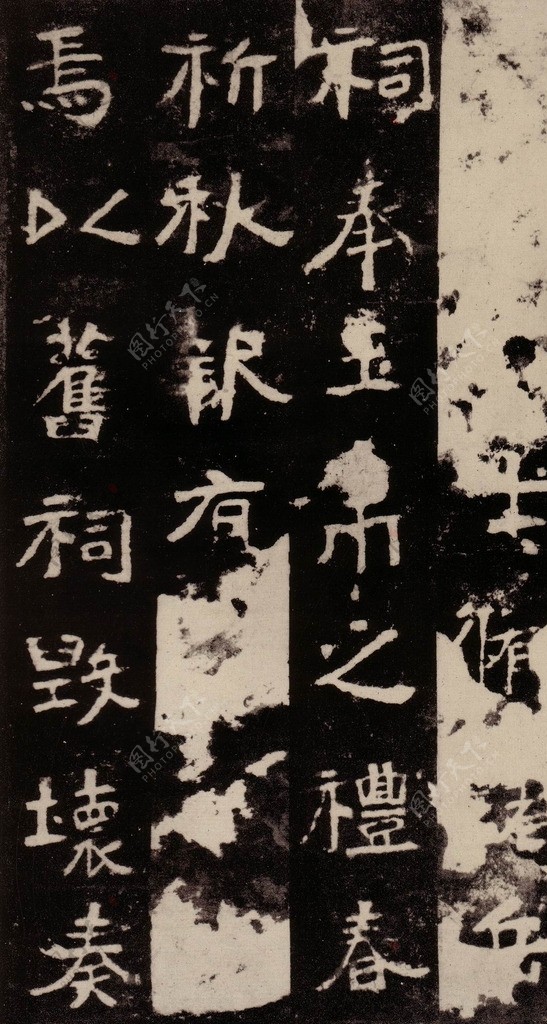 脩岳
祠奉玉帛之禮春
祈秋報有
焉以舊祠毀壞奏
图行天下 PHOTOPHOTO.CN